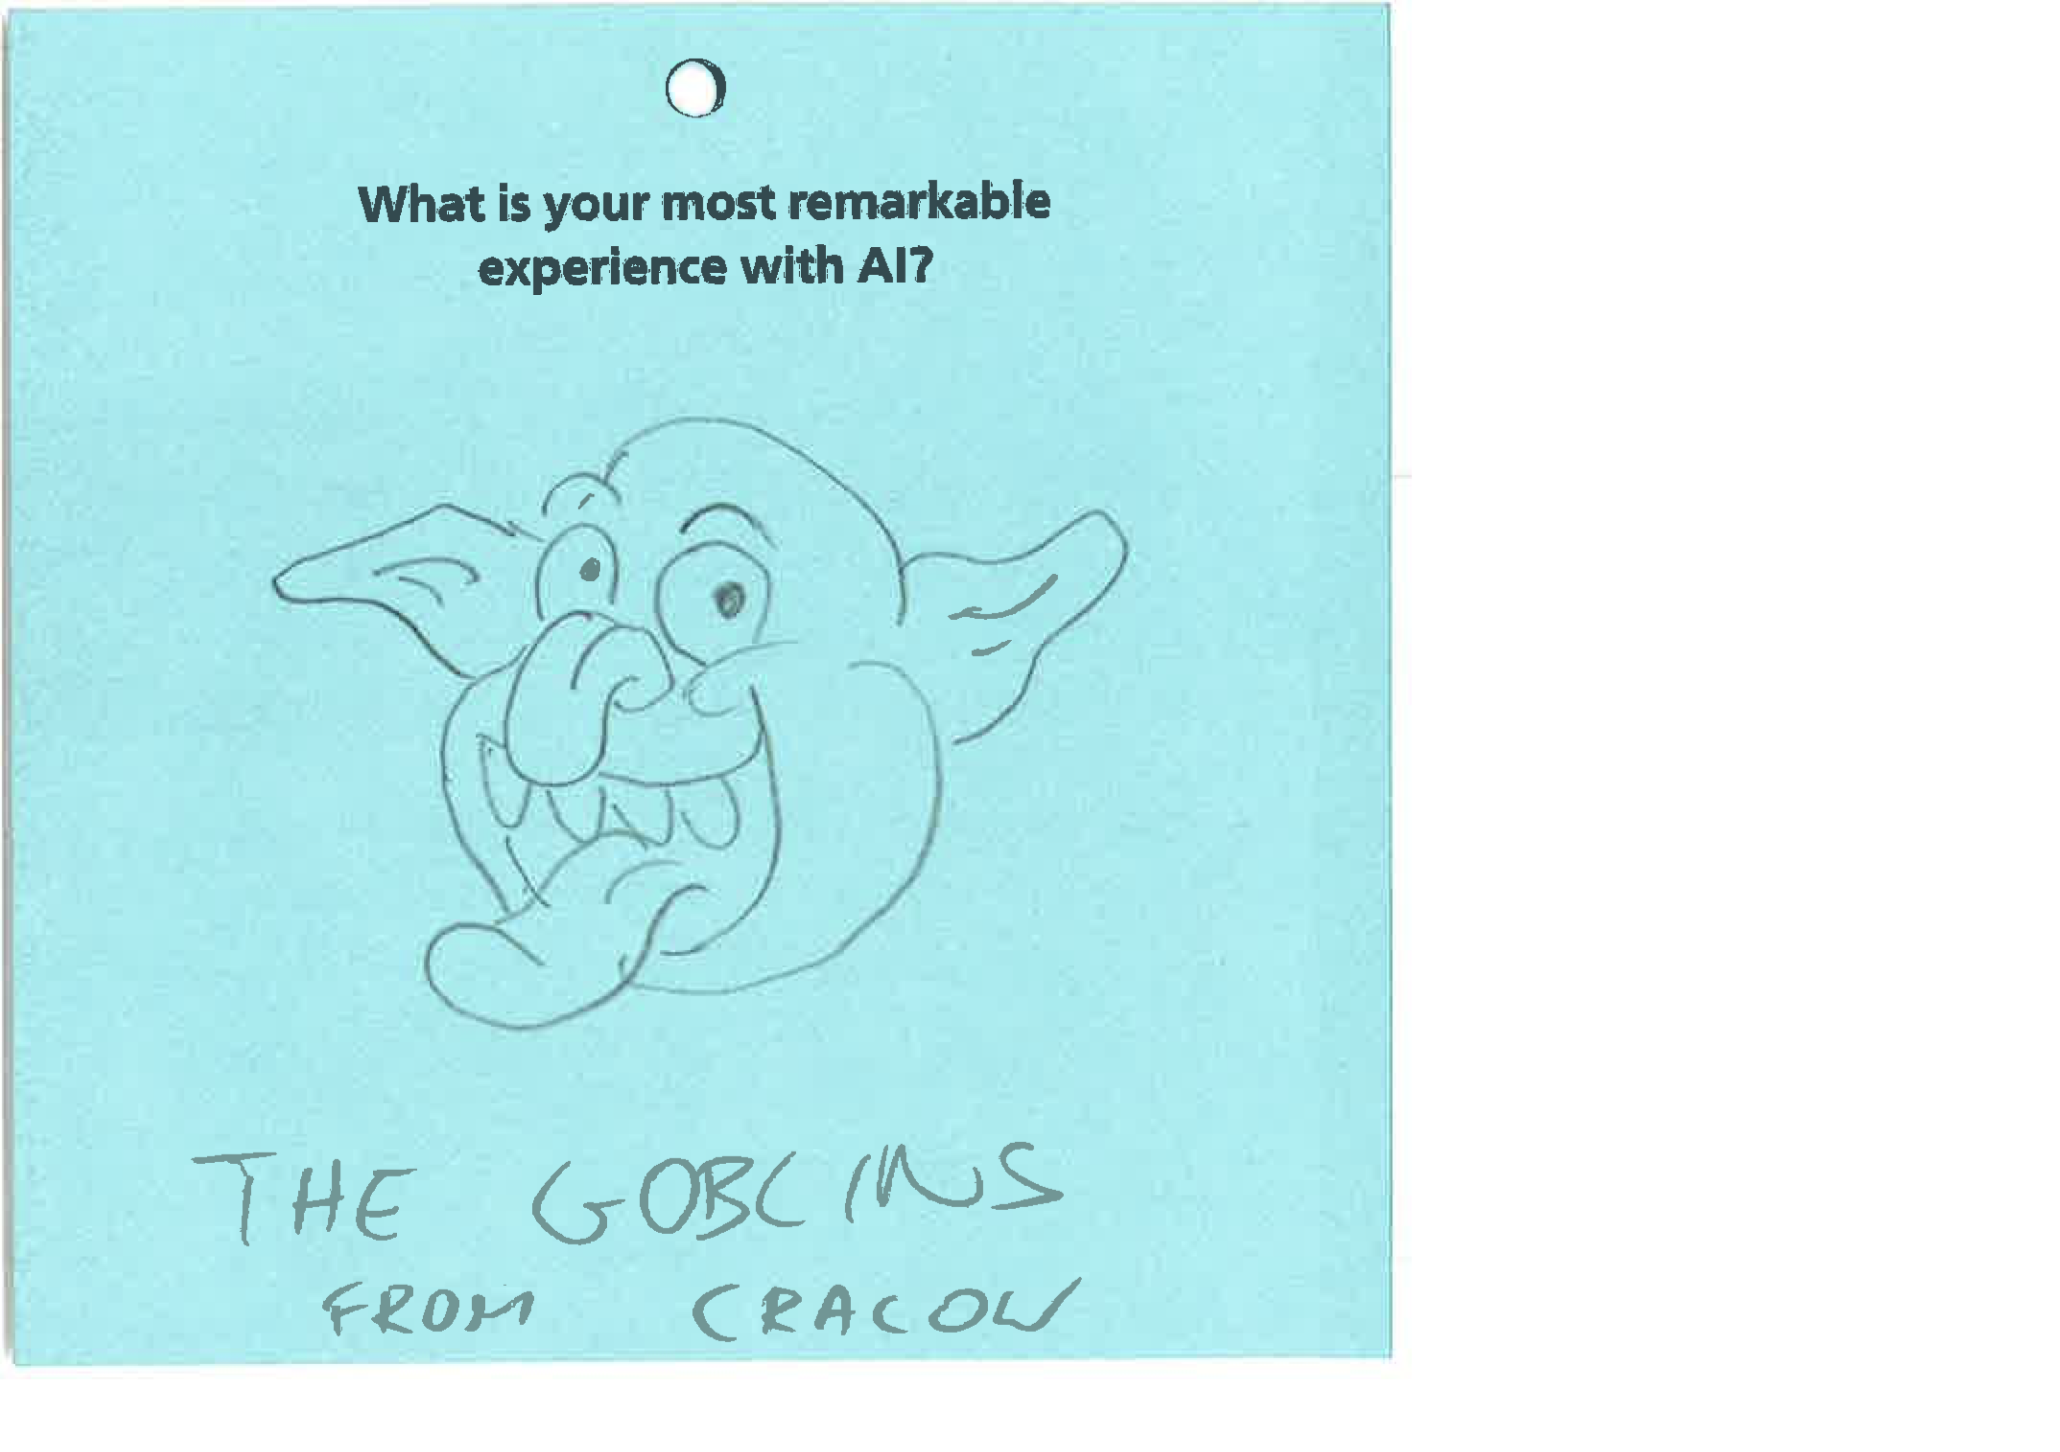 What is your most remarkable
experience with AI?
THE GOBLINS
FROM CRACOW